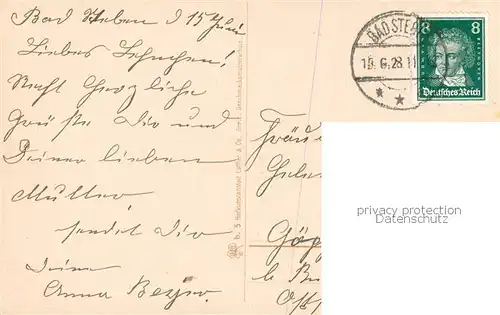 Bad Steben d 15 Juni
Liebes Lehnchen!
Recht Herzliche
Grüße Dir und
Deiner lieben
Mutter
sendet Dir
Deine
Anna
BAD STE
15.6.28.11
8 8
BEETHOVEN
Deutsches Reich
Fräu
Göp
b.
privacy protection
Datenschutz